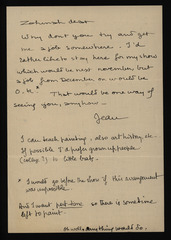 Zahurah dear
Why don't you try and get
me a job somewhere. I'd
rather like to stay here for my show
which would be next november but
a job from December on would be
O.K.* That would be one way of
seeing you, anyhow..
Jean
I can teach painting, also art history etc.
If possible I'd prefer grown up people
(college?) to little bats.
* I would go before the show if this arrangement
was impossible.
And I want part-time so there is sometime
left to paint.
Oh well, anything would do.